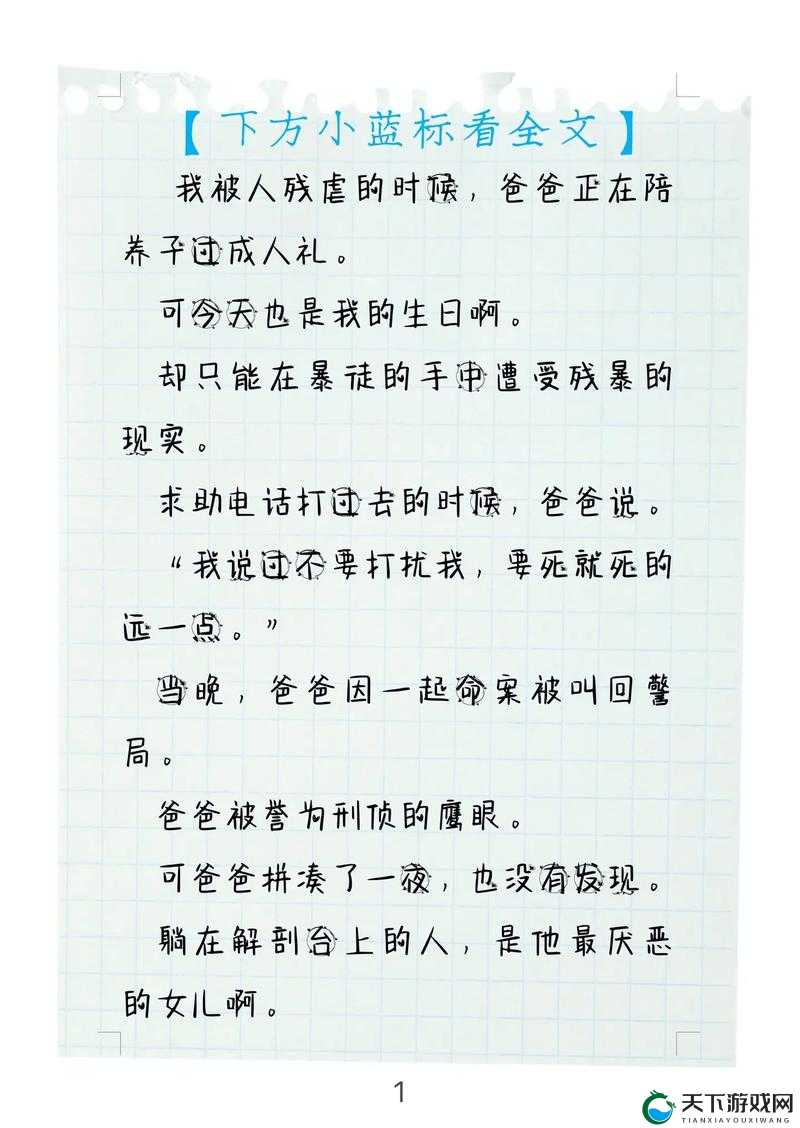 【下方小蓝标看全文】
我被人残虐的时候，爸爸正在陪
养子过成人礼。
可今天也是我的生日啊。
却只能在暴徒的手中遭受残暴的
现实。
求助电话打过去的时候，爸爸说。
“我说过不要打扰我，要死就死的
远一点。”
当晚，爸爸因一起命案被叫回警
局。
爸爸被誉为刑侦的鹰眼。
可爸爸拼凑了一夜，也没有发现。
躺在解剖台上的人，是他最厌恶
的女儿啊。
1
天下游戏网
TIANXIAYOUXIWANG